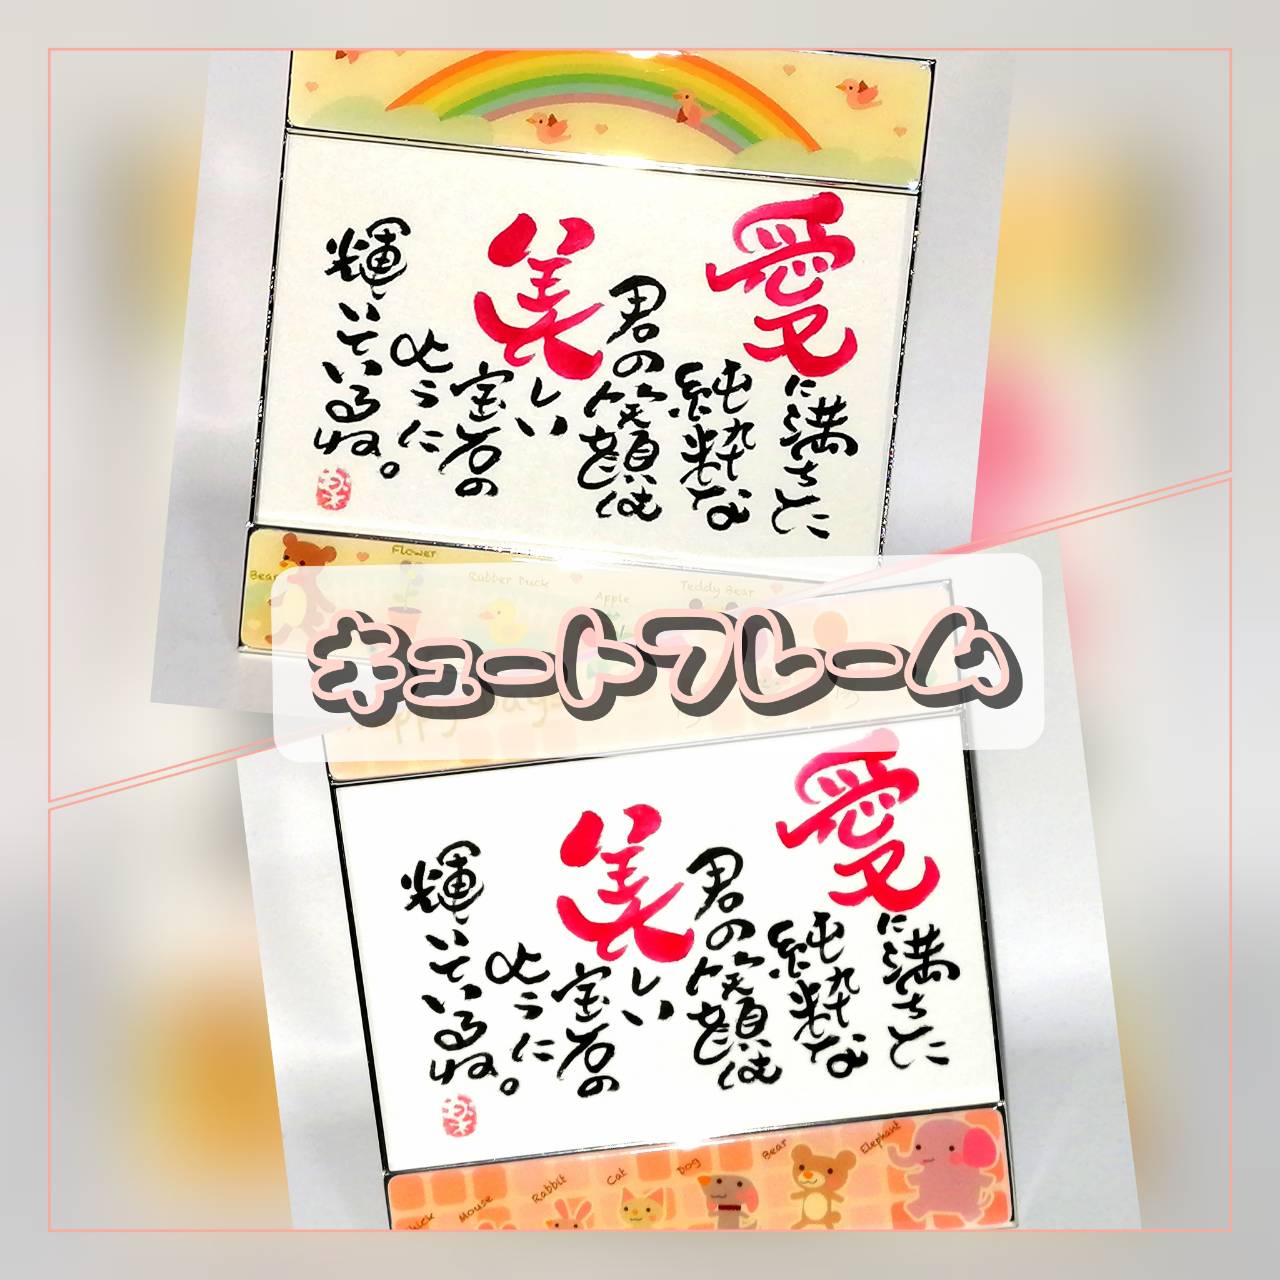 愛に満ちた
純粋な
君の笑顔は
美しい
宝石の
ように
輝いているね。
Flower
Bear
Rubber Duck
Apple
Teddy Bear
キュートフレーム
愛に満ちた
純粋な
君の笑顔は
美しい
宝石の
ように
輝いているね。
Mouse
Rabbit
Cat
Dog
Bear
Elephant